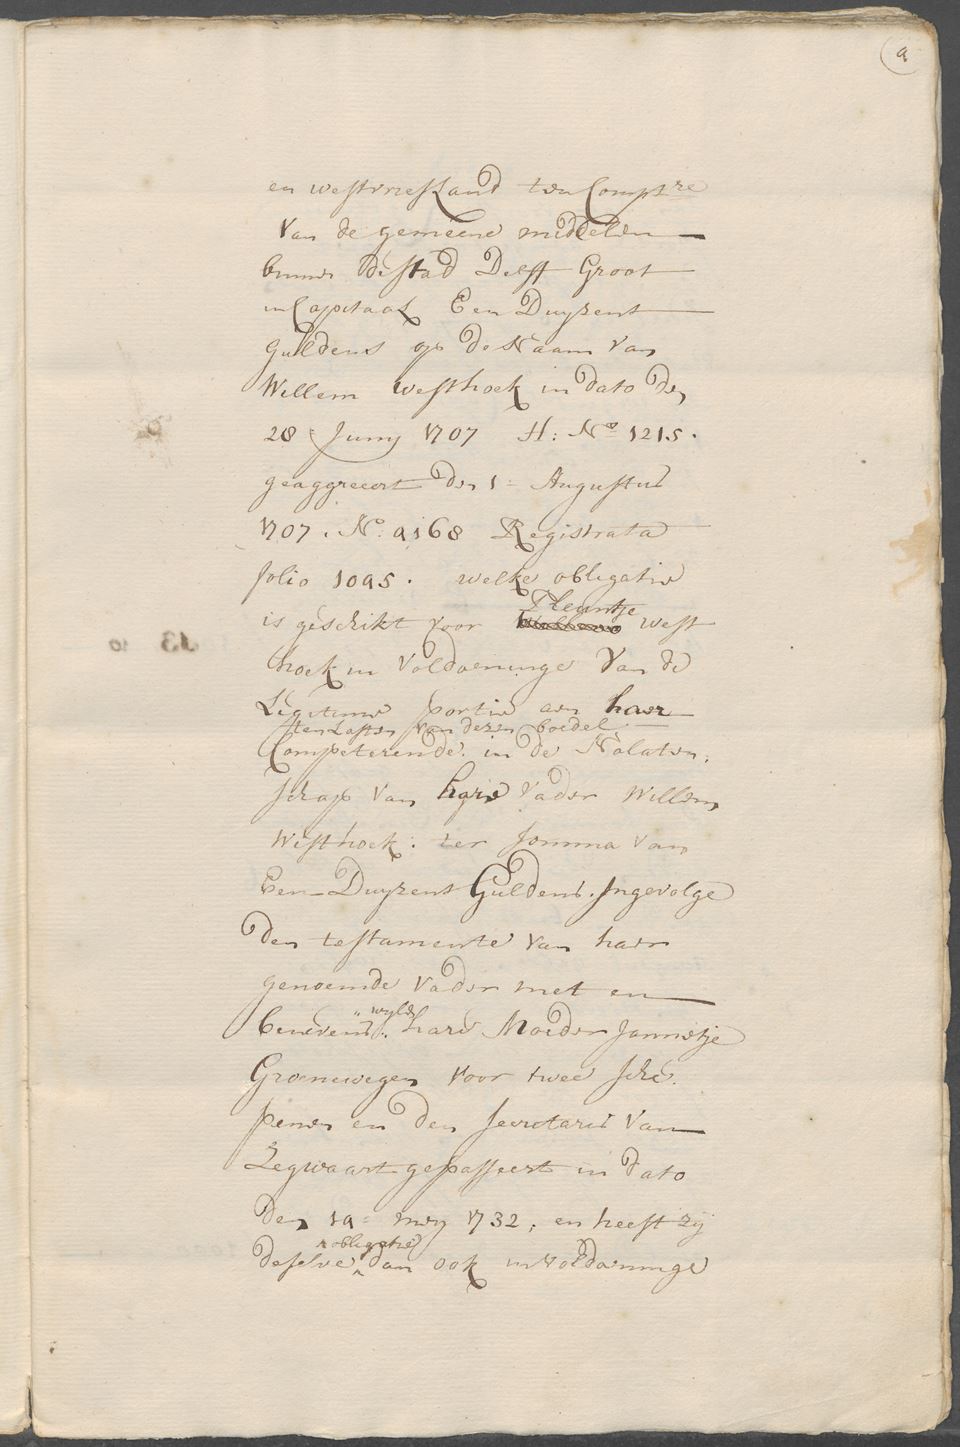 9
en westvriesland ten Compt:re
van de gemeene middelen
binnen de stad Delft Groot
in Capitaal Een Duyzent
Guldens op de Naam van
Willem westhoek in dato den
28=Juny 1707 H: No 1215.
geaggreert den 1= Augustus
1707. No: 9168 Registrata
folio 1095. welke obligatie
is geschikt voor Pleuntje west
hoek in voldoeninge van de
Legitime portie aen haer
ten laste van desen boedel
Competerende in de Nalaten,
schap van hare vader Willem
westhoek: ter somma van
Een Duyzent Guldens. Ingevolge
den testamente van haer
genoemde vader met en
wylen
benevens hare Moeder Jannetje
Groenewegen voor twee sche,
penen en den secretaris van
Zegwaart gepasseert in dato
Den 19= mey 1732, en heeft zij
obligatie
deselve dan ook in voldoeninge